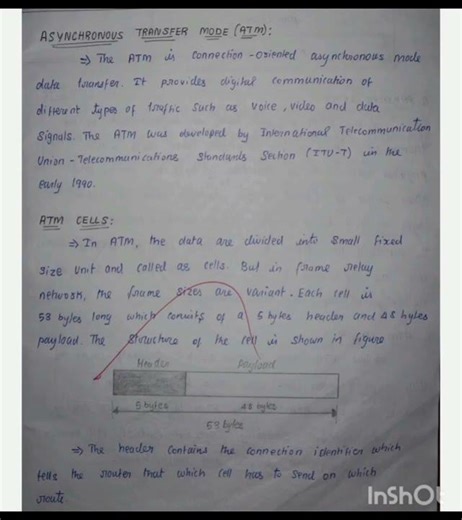 ASYNCHRONOUS TRANSFER MODE (ATM):
⇒ The ATM is connection-oriented asynchronous mode
data transfer. It provides digital communication of
different types of traffic such as voice, video and data
signals. The ATM was developed by International Telecommunication
Union-Telecommunications Standards Section (ITU-T) in the
early 1990.
ATM CELLS:
⇒ In ATM, the data are divided into small fixed
size unit and called as cells. But in frame relay
network, the frame sizes are variant. Each cell is
53 bytes long which consists of a 5 bytes header and 48 bytes
payload. The structure of the cell is shown in figure
Header Payload
5 bytes 48 bytes
53 bytes
⇒ The header contains the connection identifier which
tells the router that which cell has to send on which
route.
InShOt